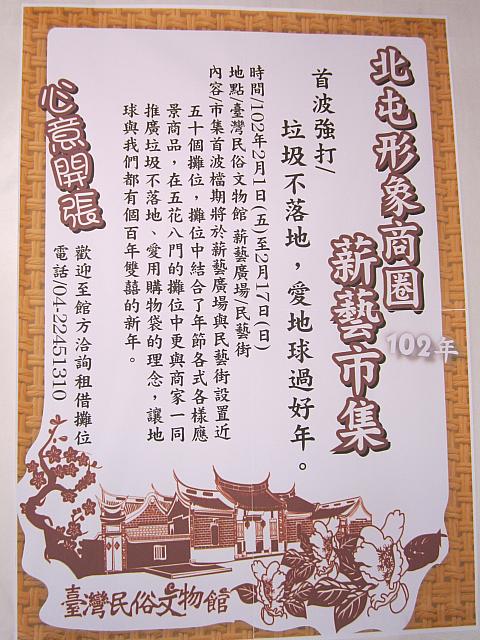 北屯形象商圈
薪藝市集
102年
首波強打/
垃圾不落地，愛地球過好年。
時間/102年2月1日(五)至2月17日(日)
地點/臺灣民俗文物館 薪藝廣場與民藝街
內容/市集首波檔期將於薪藝廣場與民藝街設置近
五十個攤位，攤位中結合了年節各式各樣應
景商品，在五花八門的攤位中更與商家一同
推廣垃圾不落地、愛用購物袋的理念，讓地
球與我們都有個百年雙囍的新年。
心意開張
歡迎至館方洽詢租借攤位
電話/04-22451310
臺灣民俗文物館